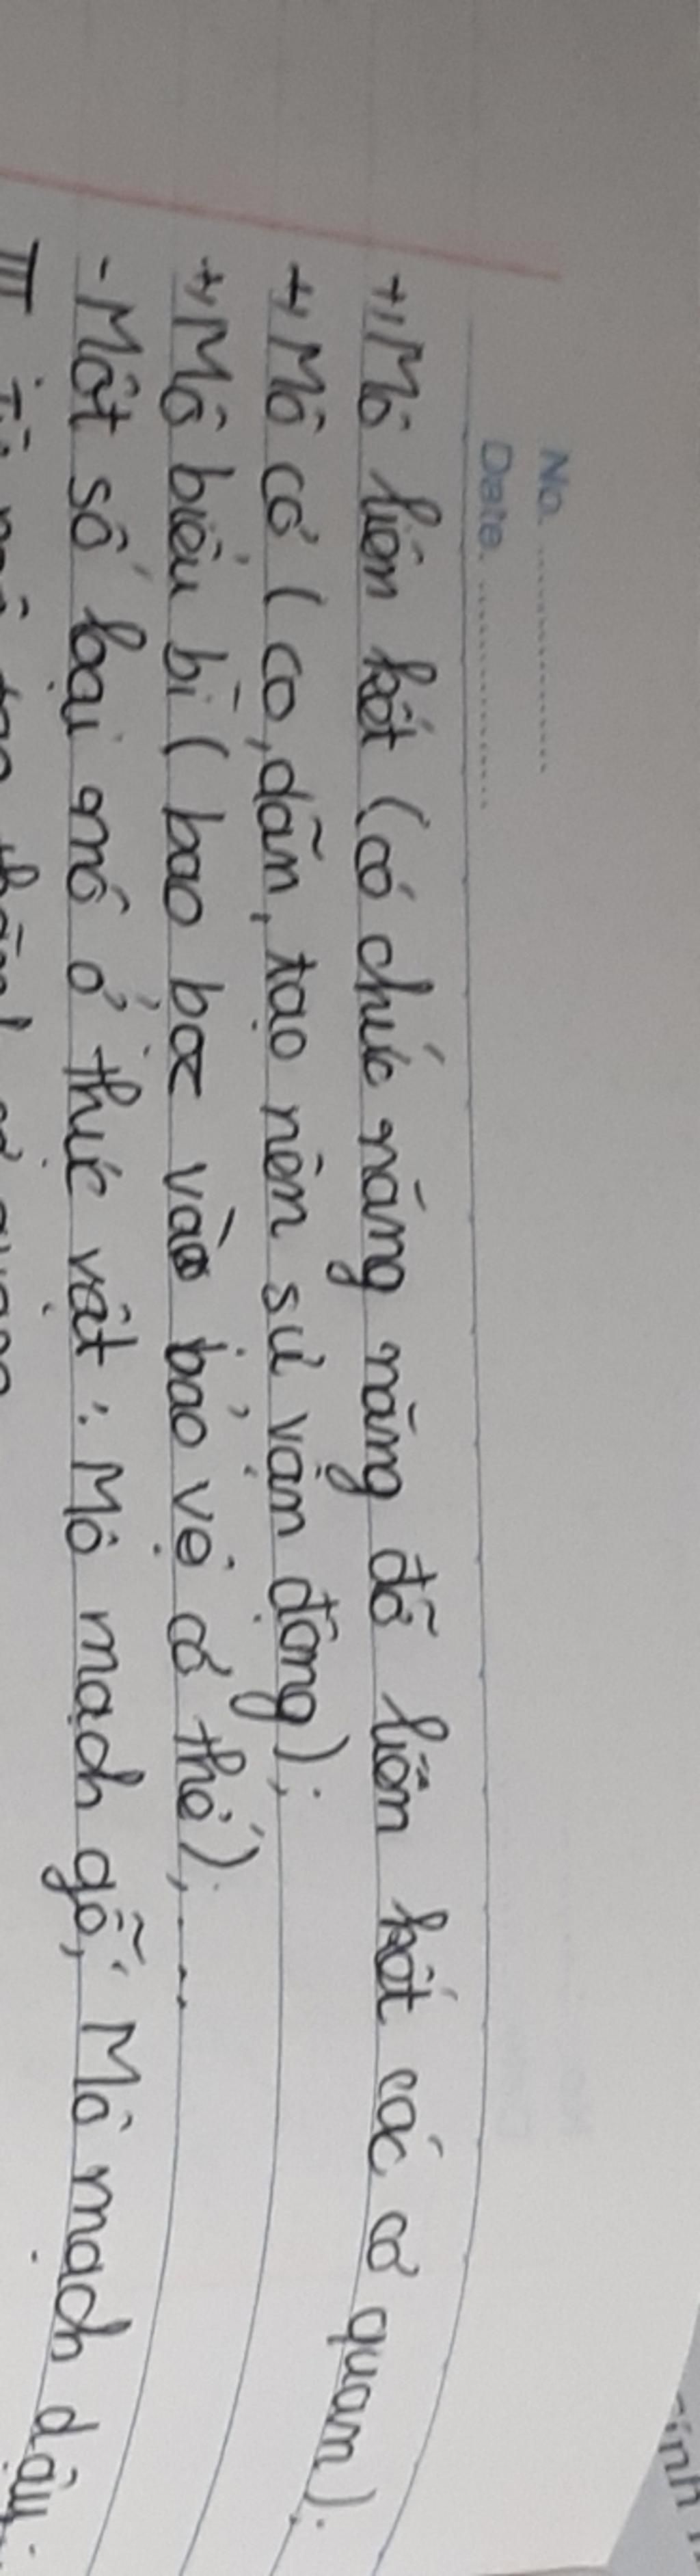 No. ....................
Date. ....................
+, Mô liên kết (có chức năng nâng đỡ liên kết các cơ quan);
+, Mô cơ (co, dãn, tạo nên sự vận động);
+, Mô biểu bì (bao bọc và bảo vệ cơ thể),...
- Một số loại mô ở thực vật: Mô mạch gỗ, Mô mạch dây,
III